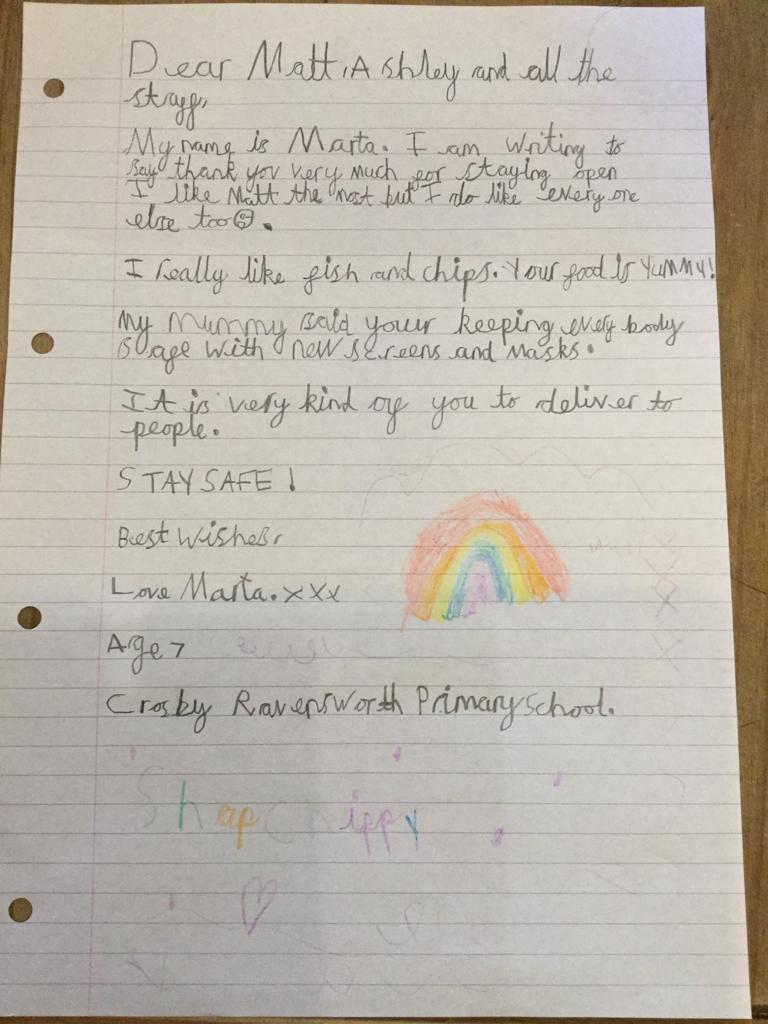 Dear Matt, Ashley and all the
staff,
My name is Marta. I am writing to
say thank you very much for staying open
I like Matt the most but I do like every one
else too☺.
I really like fish and chips. Your food is YUMMY!
My Mummy said your keeping every body
safe with new screens and masks.
It is very kind of you to deliver to
people.
STAY SAFE!
Best wishes,
Love Marta. xxx
Age 7
Crosby Ravensworth Primary school.
Shap Chippy